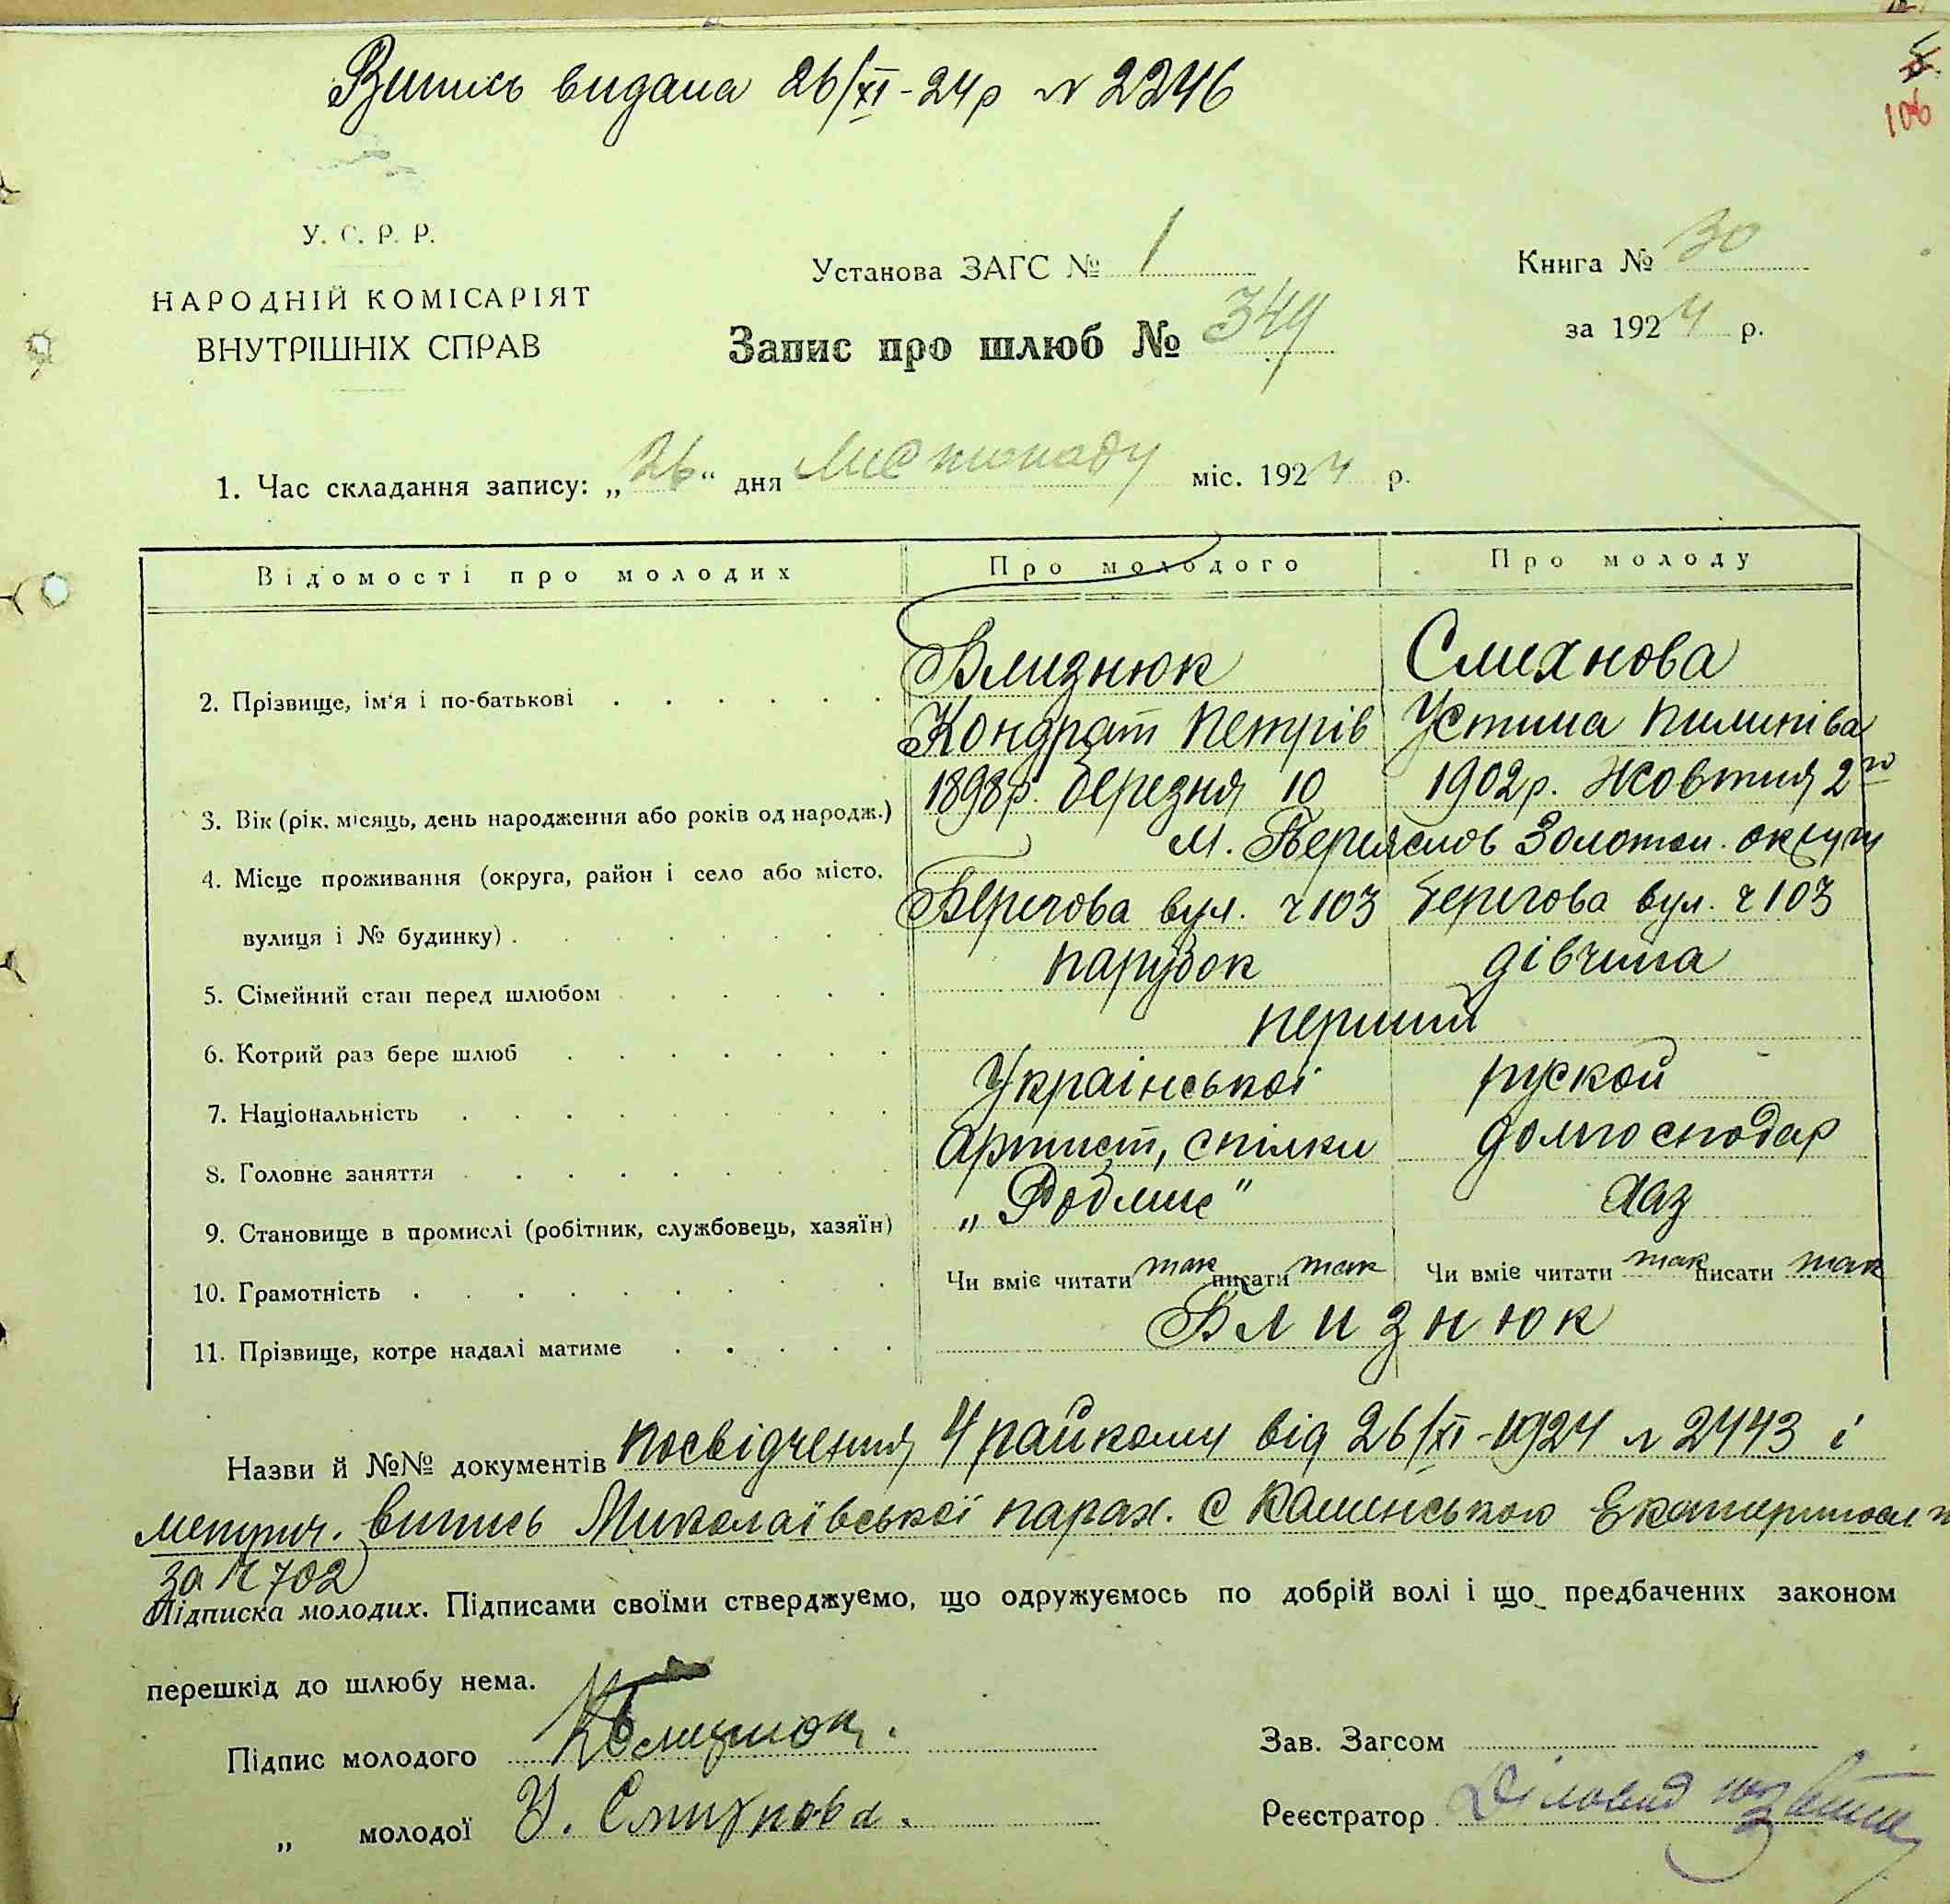 Випись видана 26/XI-24р № 2246
106
У. С. Р. Р.
НАРОДНІЙ КОМІСАРІЯТ
ВНУТРІШНІХ СПРАВ
Установа ЗАГС № 1
Запис про шлюб № 349
Книга № 30
за 1924 р.
1. Час складання запису: „26" дня Листопаду міс. 1924 р.
Відомості про молодих Про молодого Про молоду
2. Прізвище, ім'я і по-батькові
Близнюк
Кондрат Петрів
Смихнова
Устина Пилипівa
3. Вік (рік, місяць, день народження або років од народж.) 1898р. березня 10 1902р. Жовтня 2го
4. Місце проживання (округа, район і село або місто,
вулиця і № будинку)
м. Переяслов Золотон. округи
Берегова вул. ч 103 Берегова вул. ч 103
5. Сімейний стан перед шлюбом парубок дівчина
6. Котрий раз бере шлюб перший
7. Національність Української руской
8. Головне заняття Артист, спілки домгосподар
9. Становище в промислі (робітник, службовець, хазяїн) „Робмис"
10. Грамотність Чи вміє читати так писати так Чи вміє читати так писати так
11. Прізвище, котре надалі матиме Близнюк
Назви й №№ документів посвідчення 4 райкому від 26/XI-1924 № 2443 і
метрич. випись Миколаївської парах. с Каменського
за № 702
Підписка молодих. Підписами своїми стверджуємо, що одружуємось по добрій волі і що предбачених законом
перешкід до шлюбу нема.
Підпис молодого КБлизнюк.
„ молодої У. Смихнова.
Зав. Загсом
Реєстратор